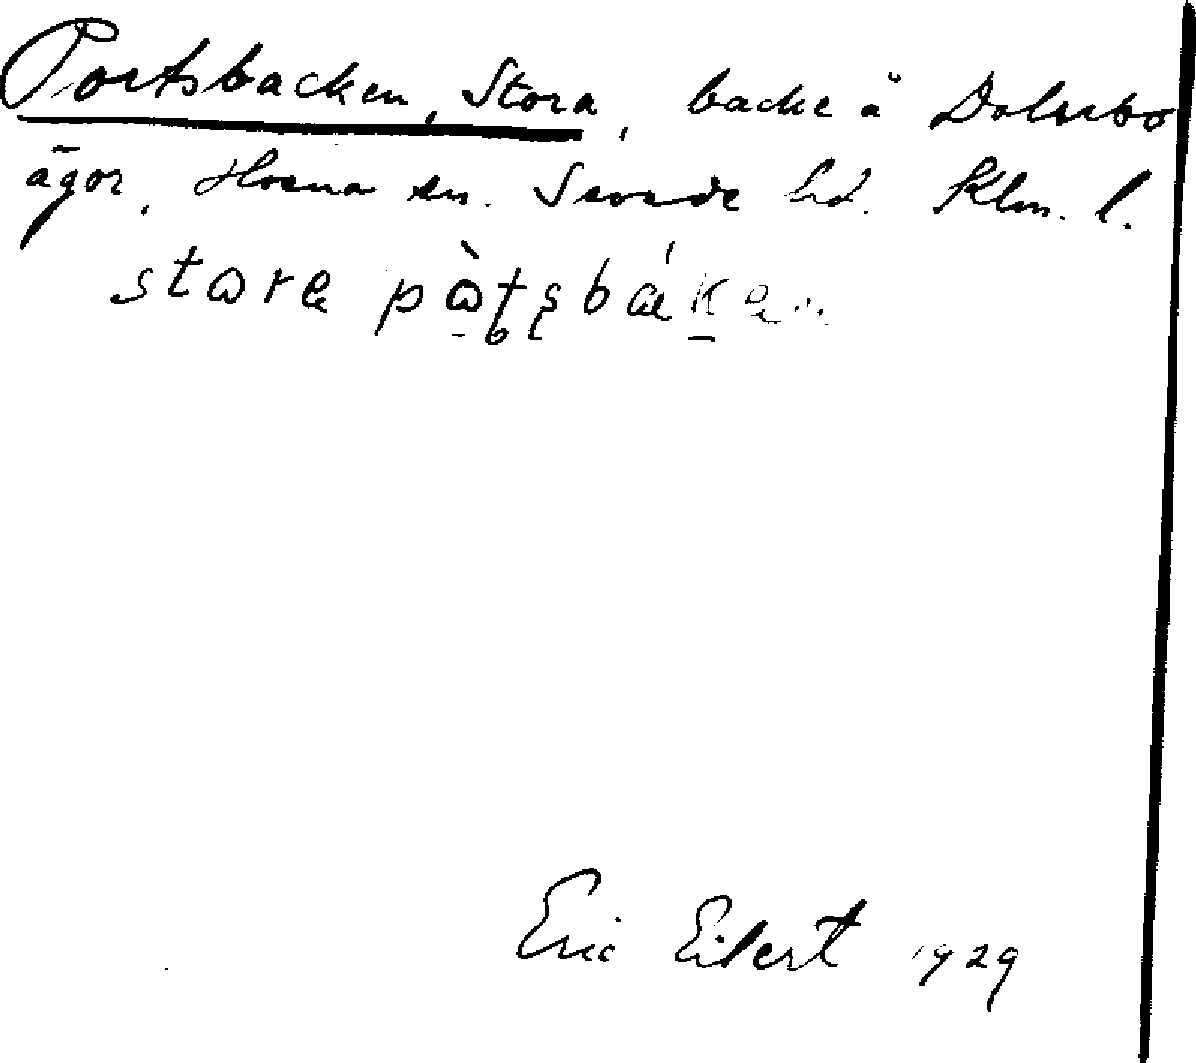 Portsbacken, Stora, backe å Dalsebo
ägor, Horna sn. Sevede hd. Klm. l.
store pòtsbáken
Eric Eilert 1929